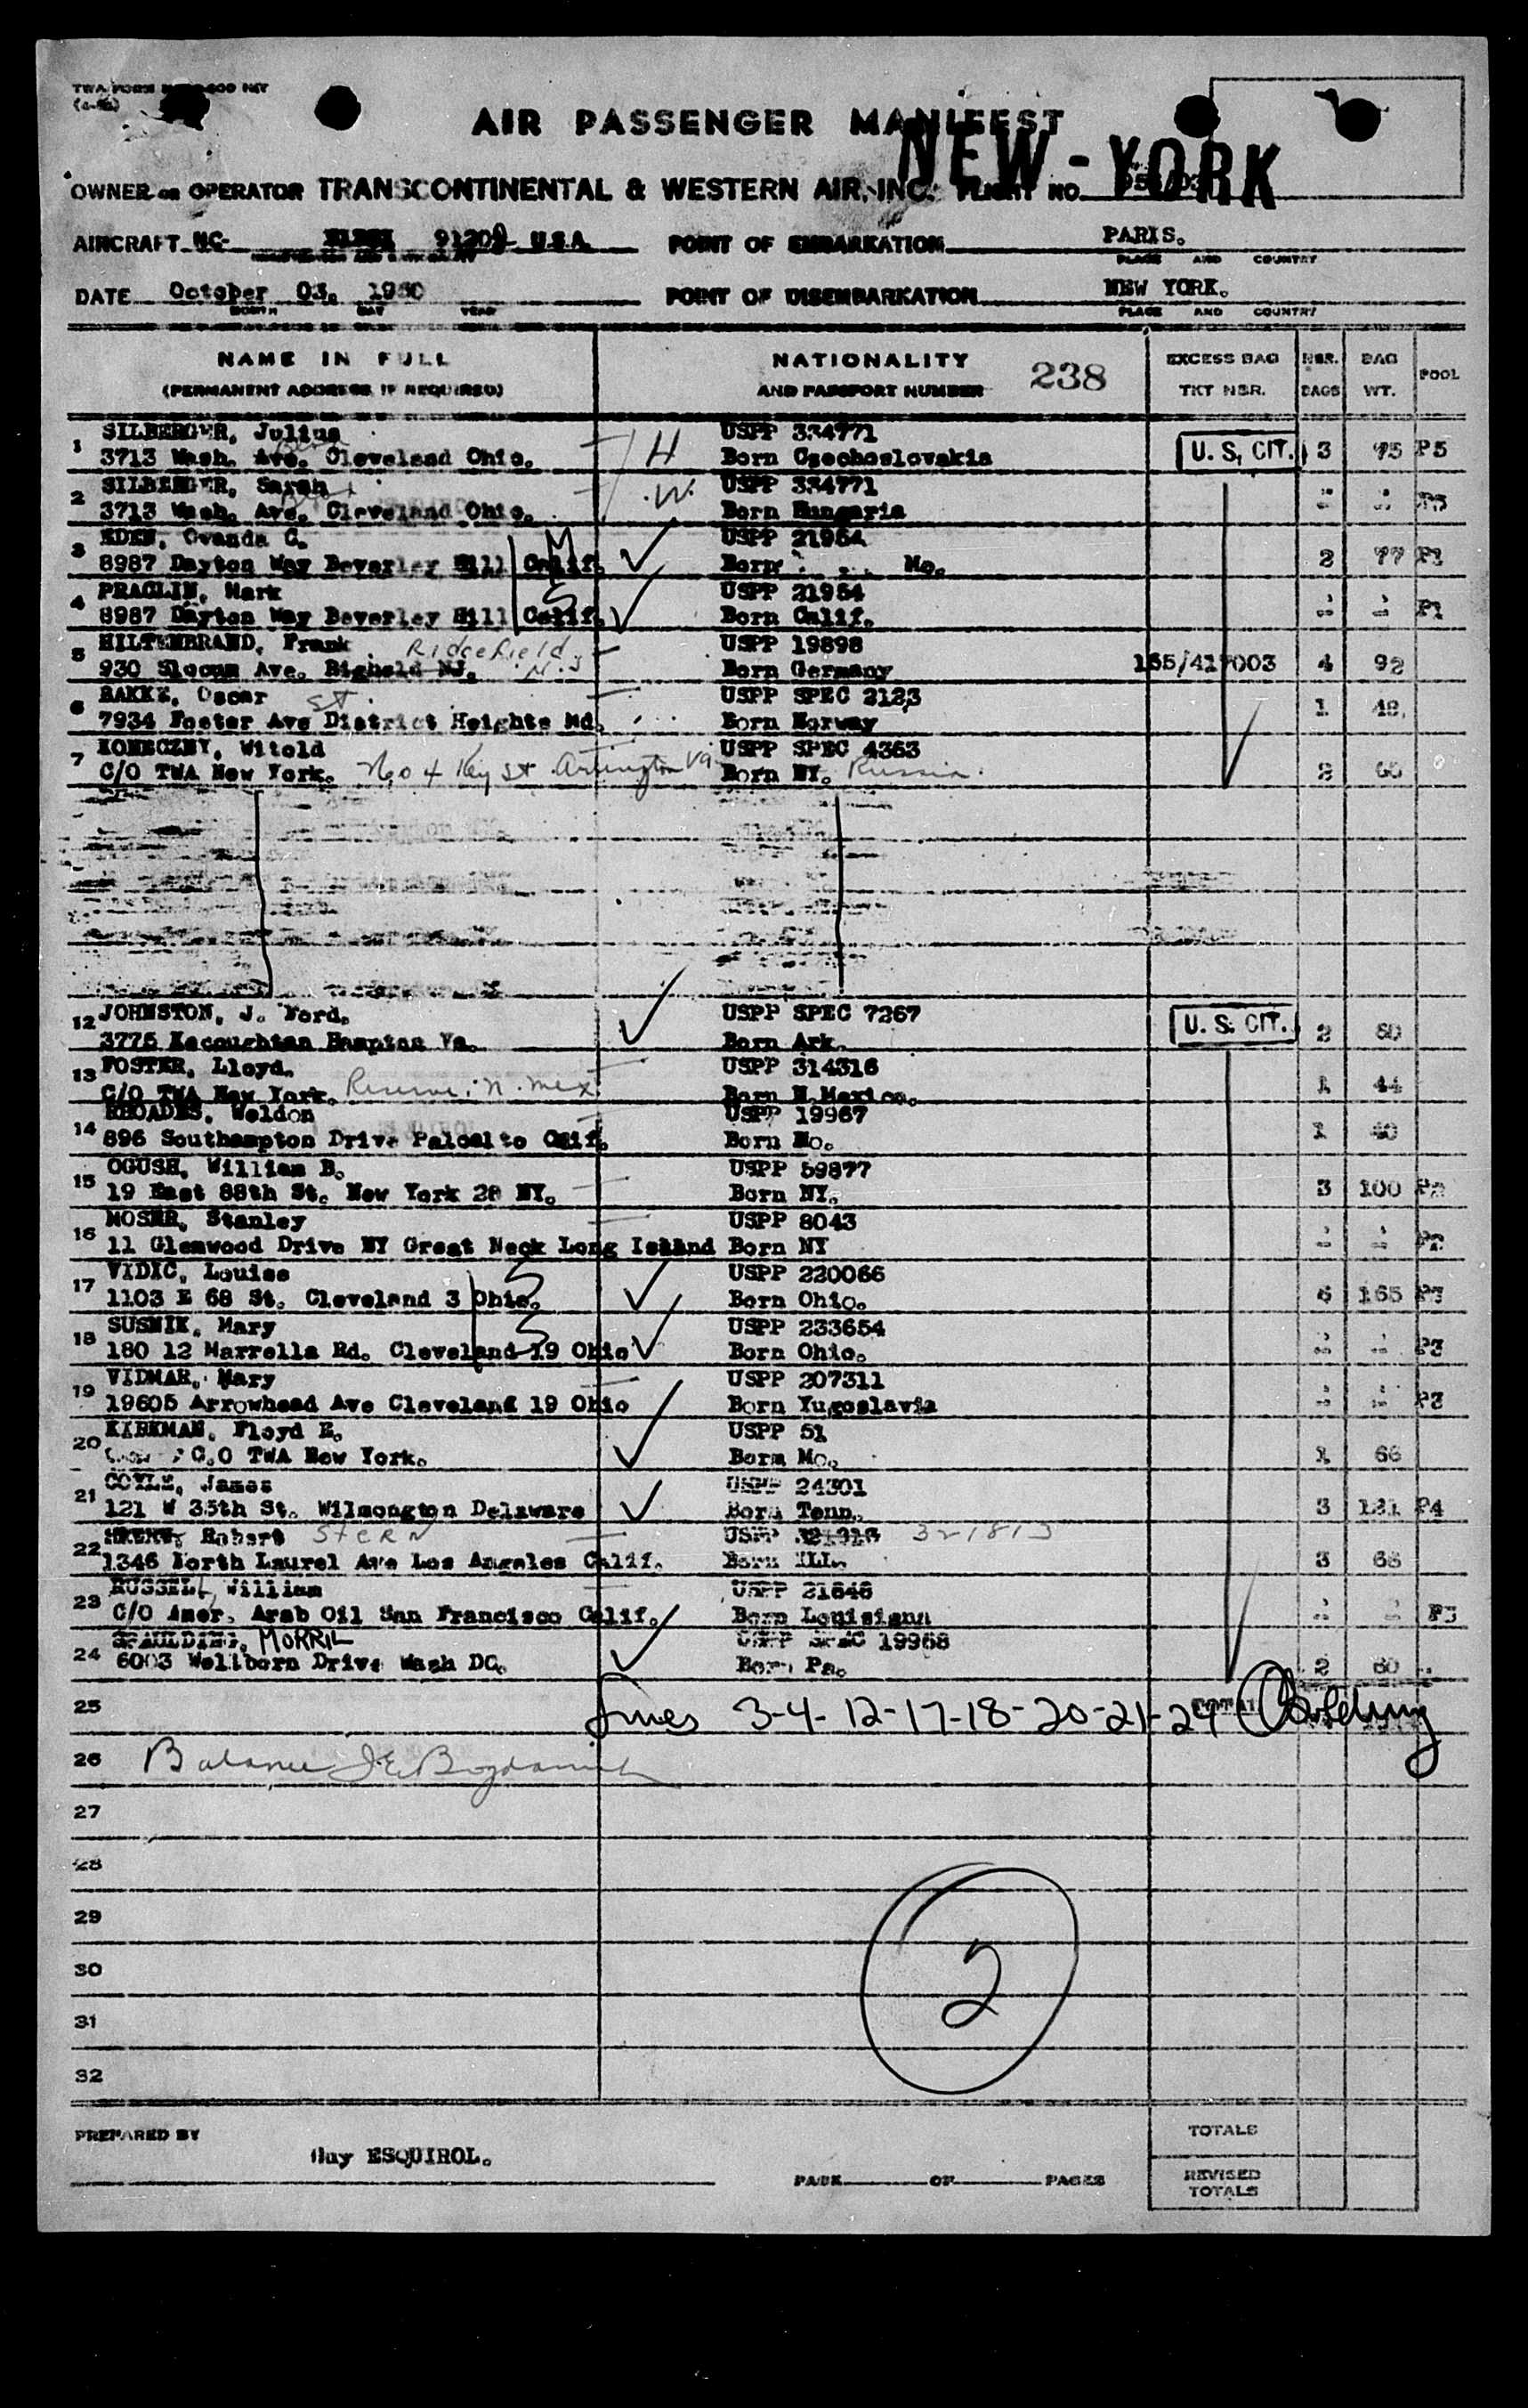 (4-
AIR PASSENGER MANIFEST
NEW-YORK
OWNER OR OPERATOR TRANSCONTINENTAL & WESTERN AIR, INC. FLIGHT NO.
AIRCRAFT NC- 91209 USA POINT OF EMBARKATION PARIS.
PLACE AND COUNTRY
DATE October 03. 1950 POINT OF DISEMBARKATION NEW YORK.
MONTH DAY YEAR PLACE AND COUNTRY
NAME IN FULL NATIONALITY 238 EXCESS BAG NBR. BAG POOL
(PERMANENT ADDRESS IF REQUIRED) AND PASSPORT NUMBER TKT NBR. BAGS WT.
1 SILBERGER, Julius USPP 334771
3713 Wash. Ave. Cleveland Ohio. H Born Czechoslovakia U. S. CIT. 3 75 P5
2 SILBERGER, Sarah USPP 334771
3713 Wash. Ave. Cleveland Ohio. W. Born Hungaria P5
3 EDEN, C. USPP 21954
8987 Dayton Way Beverley Hill Calif. M Born Mo. 2 77 P1
4 PRAGLIN, Mark USPP 21954
8987 Dayton Way Beverley Hill Calif. S Born Calif. P1
5 HILTENBRAND, Frank Ridgefield N.J USPP 19898
930 Slocum Ave. NJ. Born Germany 4 92
6 BAKKE, Oscar st. USPP SPEC 2123
7934 Foster Ave District Heights Md. Born Norway 1 48
7 KONECZNY, Witold USPP SPEC 4363
C/O TWA New York. Key st Arlington Va Born NY. Russia. 2
12 JOHNSTON, J. Ford. USPP SPEC 7267
3775 Kecoughtan Hampton Va. Born Ark. U. S. CIT. 2 60
13 FOSTER, Lloyd. USPP 314316
C/O TWA New York. Reserve. N. Mex Born N.Mexico. 1 44
14 RHOADES, Weldon USPP 19967
896 Southampton Drive Paloalto Calif. Born Mo. 1 40
15 OGUSH, William B. USPP 59877
19 East 88th St. New York 28 NY. Born NY. 3 100 P2
16 MOSER, Stanley USPP 8043
11 Glenwood Drive NY Great Neck Long Island Born NY P2
17 VIDIC, Louise USPP 220066
1103 E 68 St. Cleveland 3 Ohio. S Born Ohio. 6 165 P3
18 SUSNIK, Mary USPP 233654
180 12 Marrella Rd. Cleveland 19 Ohio S Born Ohio. P3
19 VIDMAR, Mary USPP 207311
19605 Arrowhead Ave Cleveland 19 Ohio Born Yugoslavia P3
20 KIRKMAN, Floyd E. USPP 51
C.O TWA New York. Born Mo. 1 66
21 COYLE, James USPP 24301
121 W 35th St. Wilmongton Delaware Born Tenn. 3 121 P4
22 Robert STERN USPP 321813
1346 North Laurel Ave Los Angeles Calif. Born ILL. 3 68
23 RUSSELL, William USPP 21646
C/O Amer. Arab Oil San Francisco Calif. Born Louisiana
24 SPAULDING, MORRIL USPP SPEC 19968
6003 Wellborn Drive Wash DC. Born Pa. 2 60
25 Lines 3-4-12-17-18-20-21-24
26 Balance
27
28
29
30
31
32
2
PREPARED BY TOTALS
Guy ESQUIROL.
PAGE OF PAGES REVISED
TOTALS